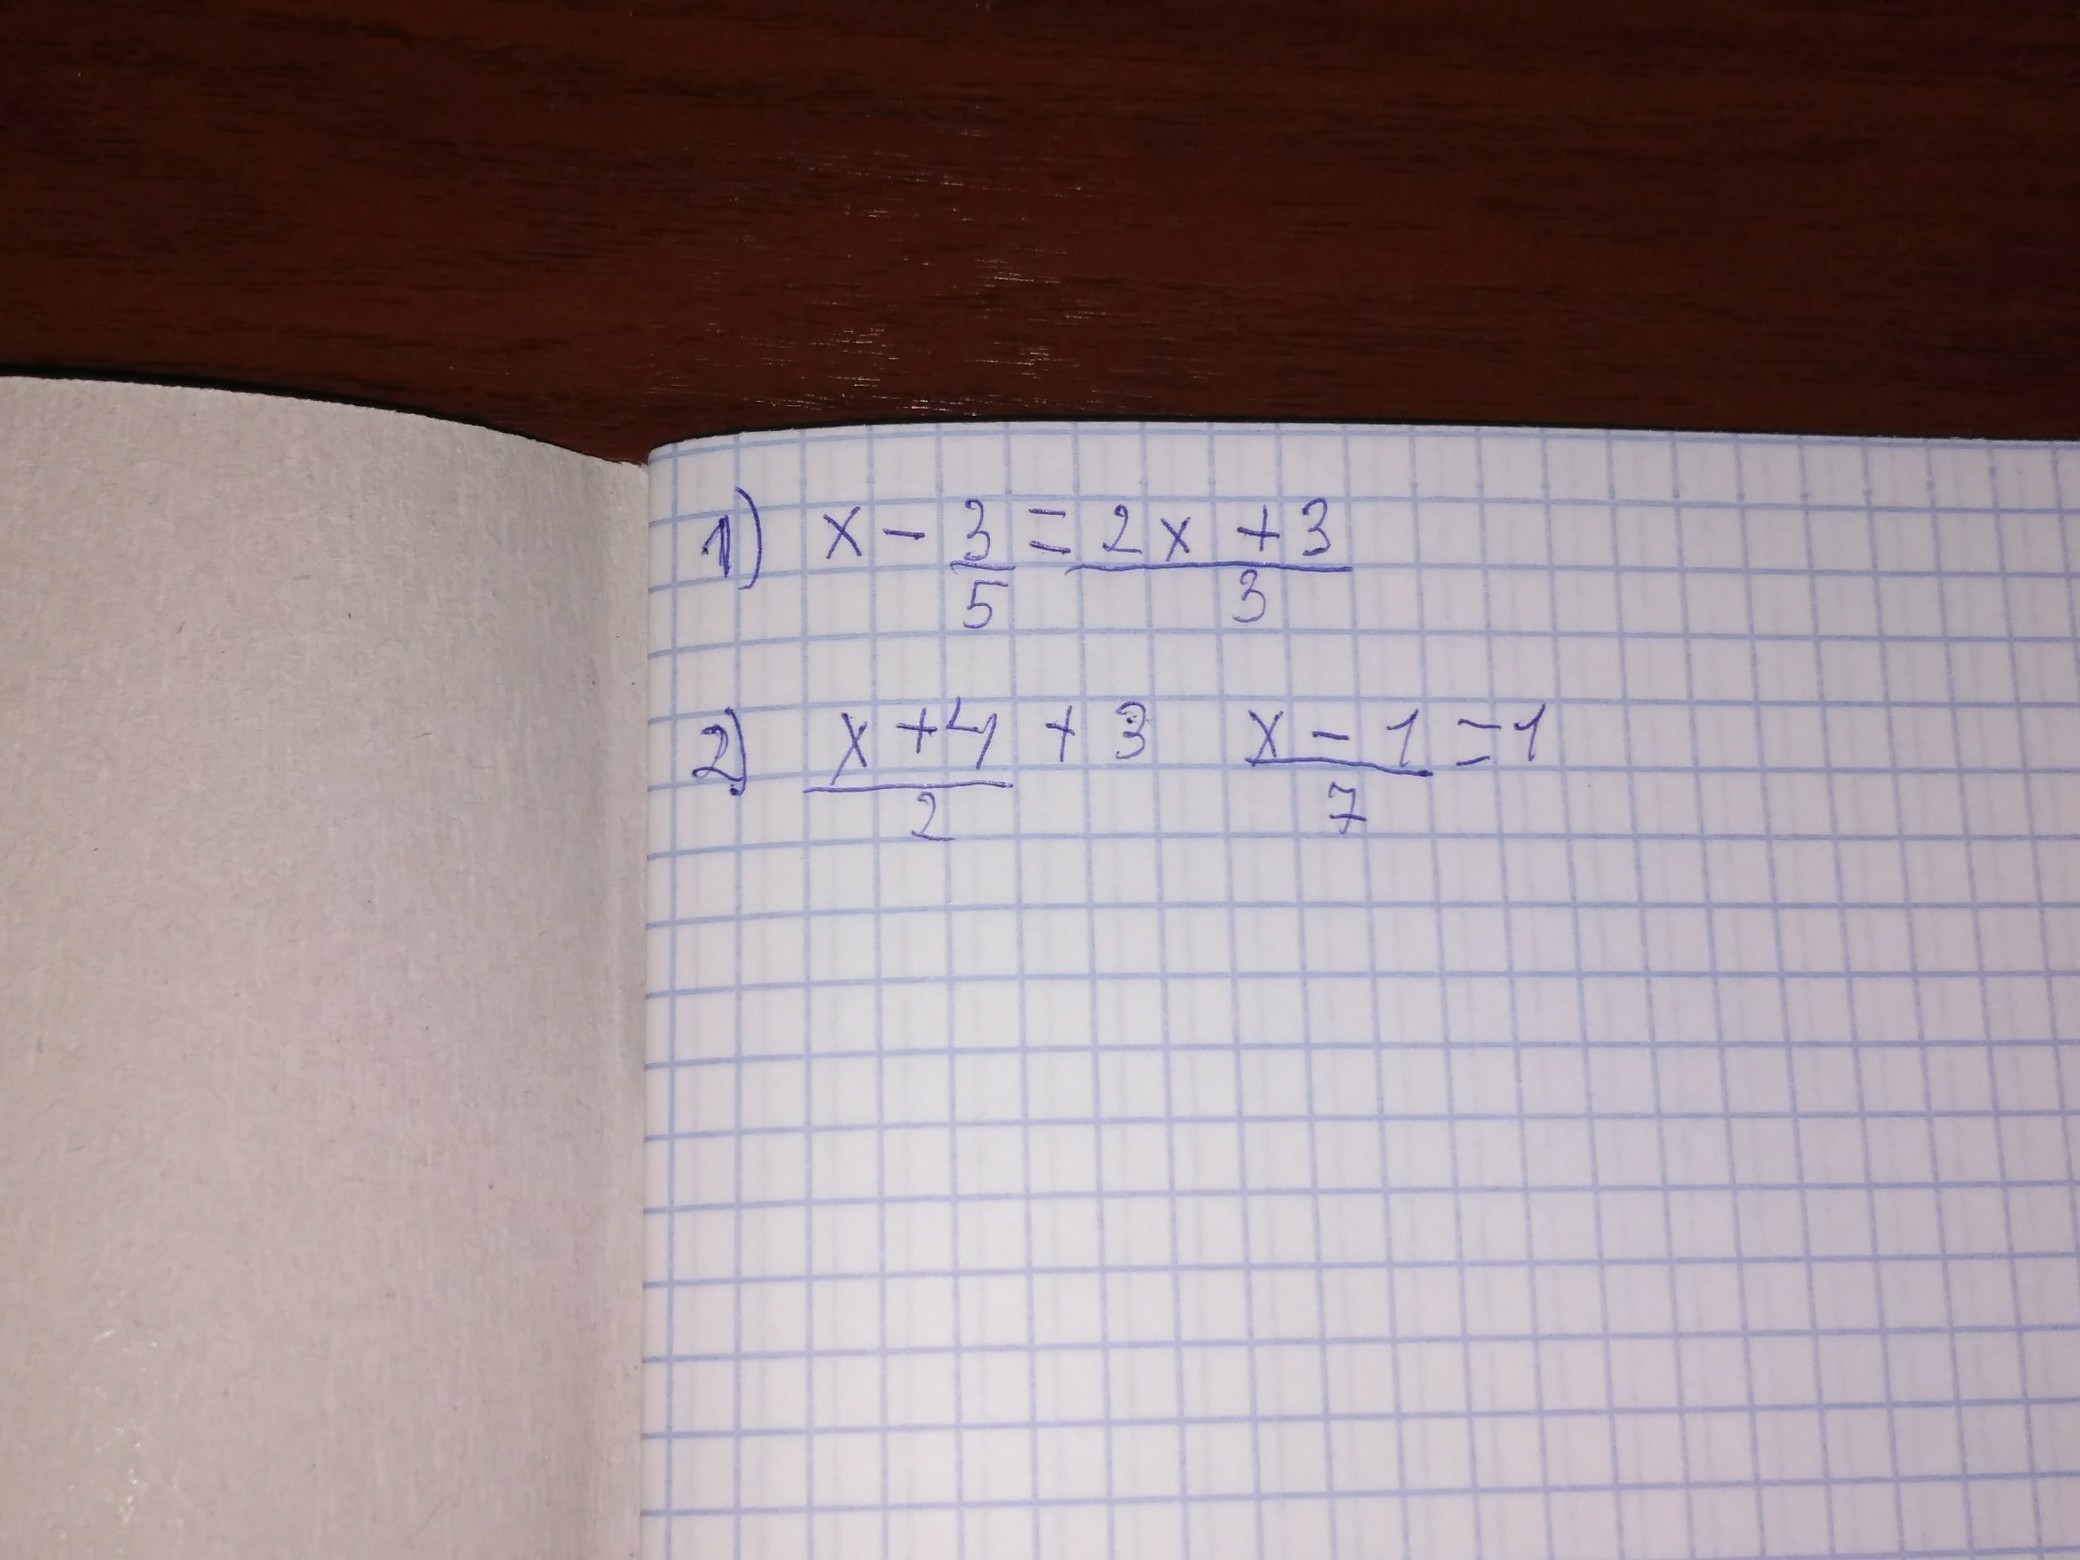 1) x - 3/5 = (2x + 3)/3
2) (x + 4)/2 + 3 (x - 1)/7 = 1